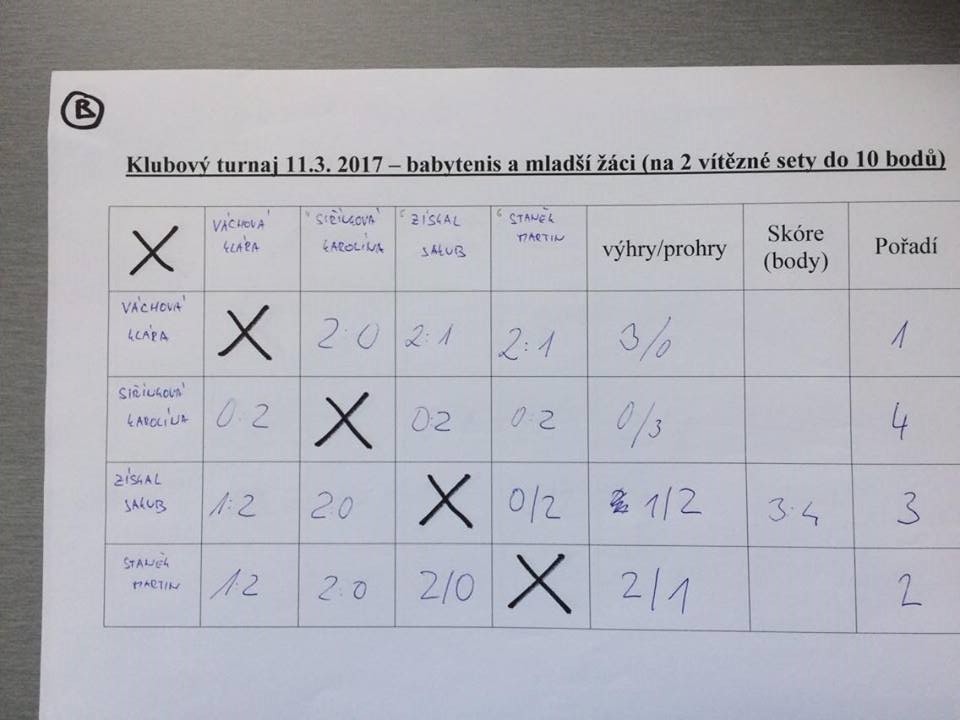 B
Klubový turnaj 11.3. 2017 – babytenis a mladší žáci (na 2 vítězné sety do 10 bodů)
X VÁCHOVÁ KLÁRA SIŘINKOVÁ KAROLÍNA ZÍSKAL JAKUB STANĚK MARTIN výhry/prohry Skóre (body) Pořadí
VÁCHOVÁ KLÁRA X 2:0 2:1 2:1 3/0 1
SIŘINKOVÁ KAROLÍNA 0:2 X 0:2 0:2 0/3 4
ZÍSKAL JAKUB 1:2 2:0 X 0/2 1/2 3:4 3
STANĚK MARTIN 1:2 2:0 2/0 X 2/1 2